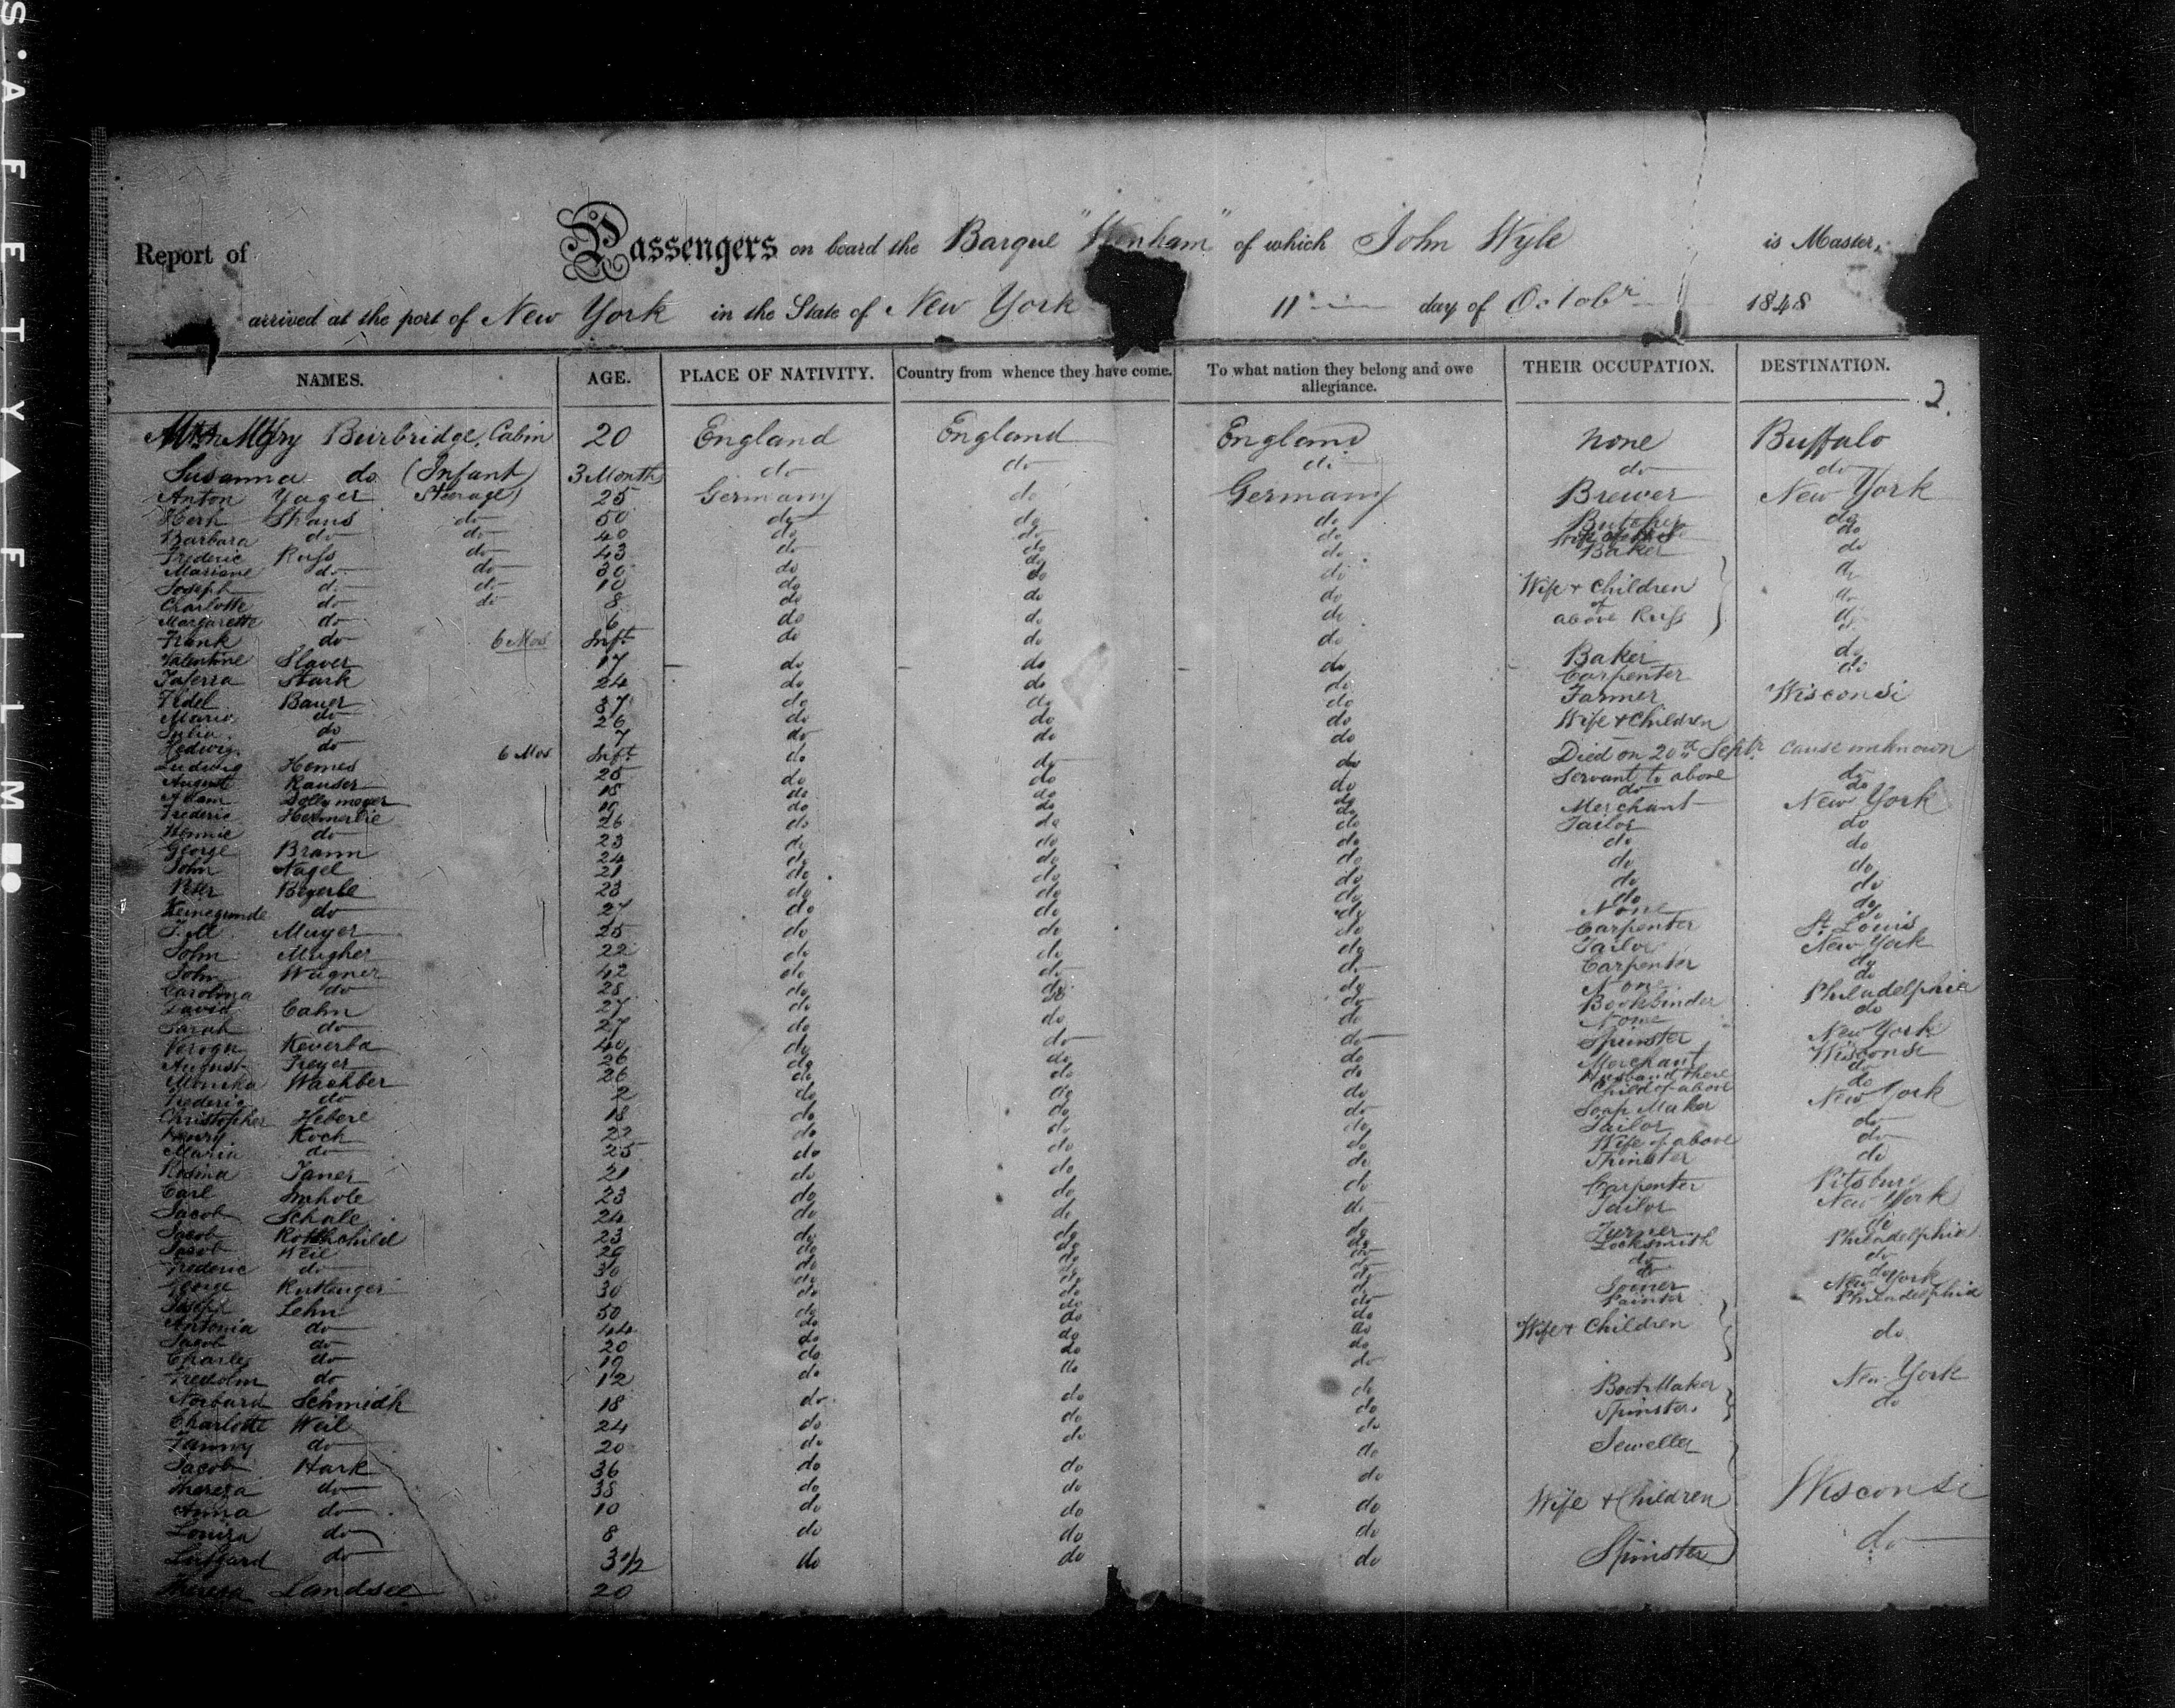 SAFETY FILM
Report of Passengers on board the Barque of which John Wyle is Master,
arrived at the port of New York in the State of New York 11 day of Octobr 1848
NAMES. AGE. PLACE OF NATIVITY. Country from whence they have come. To what nation they belong and owe allegiance. THEIR OCCUPATION. DESTINATION.
2.
Mary Burbridge, Cabin 20 England England England none Buffalo
Susanna do (Infant) 3 Month do do do do do
Anton Yager Steerage 25 Germany do Germany Brewer New York
Straus do 50 do do do Butcher do
Barbara do do 40 do do do do
Frederic Russ do 43 do do do Baker do
Mariane do do 30 do do do do
Joseph do do 10 do do do Wife & Children do
Charlotte do do 8 do do do of do
Margarette do 6 do do do above Russ do
Frank do 6 Mos Inft do do do
Valentine Slaver 17 do do do Baker do
Stark 24 do do do Carpenter do
Fidel Bauer 37 do do do Farmer Wisconsi
Maria do 26 do do do Wife & Children
Julia do 7 do do do
Hedwig do 6 Mos Inft do do do Died on 20th Septr. cause unknown
Ludwig Hemes 25 do do do Servant to above do
August Rauser 18 do do do do do
Adam Dollymeyer 19 do do do Merchant New York
Frederic 26 do do do Tailor do
do 23 do do do do do
George Braun 24 do do do do do
John Nagel 21 do do do do do
Peter Beyerle 23 do do do do do
do 27 do do do None do
Muyer 25 do do do Carpenter St. Louis
John Mugher 22 do do do Tailor New York
John Wagner 42 do do do Carpenter do
Carolina do 28 do do do None do
David Cahn 27 do do do Bookbinder Philadelphia
Sarah do 27 do do do None do
Keverba 40 do do do Spinster New York
August Freyer 26 do do do Merchant Wisconsi
Monika Wachber 26 do do do Husband there do
Frederic do 2 do do do Child of above do
Christopher Heberl 18 do do do Soap Maker New York
Henry Koch 22 do do do Tailor do
Maria do 25 do do do Wife of above do
Rosina Janer 21 do do do Spinster do
Carl Imhole 23 do do do Carpenter Pitsburg
Jacob Schale 24 do do do Tailor New York
Jacob Rothschild 23 do do do Turner do
Jacob Weil 29 do do do Locksmith Philadelphia
Frederic do 30 do do do do do
George 30 do do do Joiner New York
Joseph Lehn 50 do do do Painter Philadelphia
Antonia do 44 do do do Wife & Children
Jacob do 20 do do do do
Charles do 19 do do do
do 12 do do do
Schmidt 18 do do do Boot Maker New York
Charlotte Weil 24 do do do Spinster. do
Fanny do 20 do do do
Jacob Hark 36 do do do Jeweller
Theresa do 38 do do do
Anna do 10 do do do Wife & Children Wisconsi
Louiza do 8 do do do
do 3 1/2 do do do Spinster do
Theresa Landsee 20